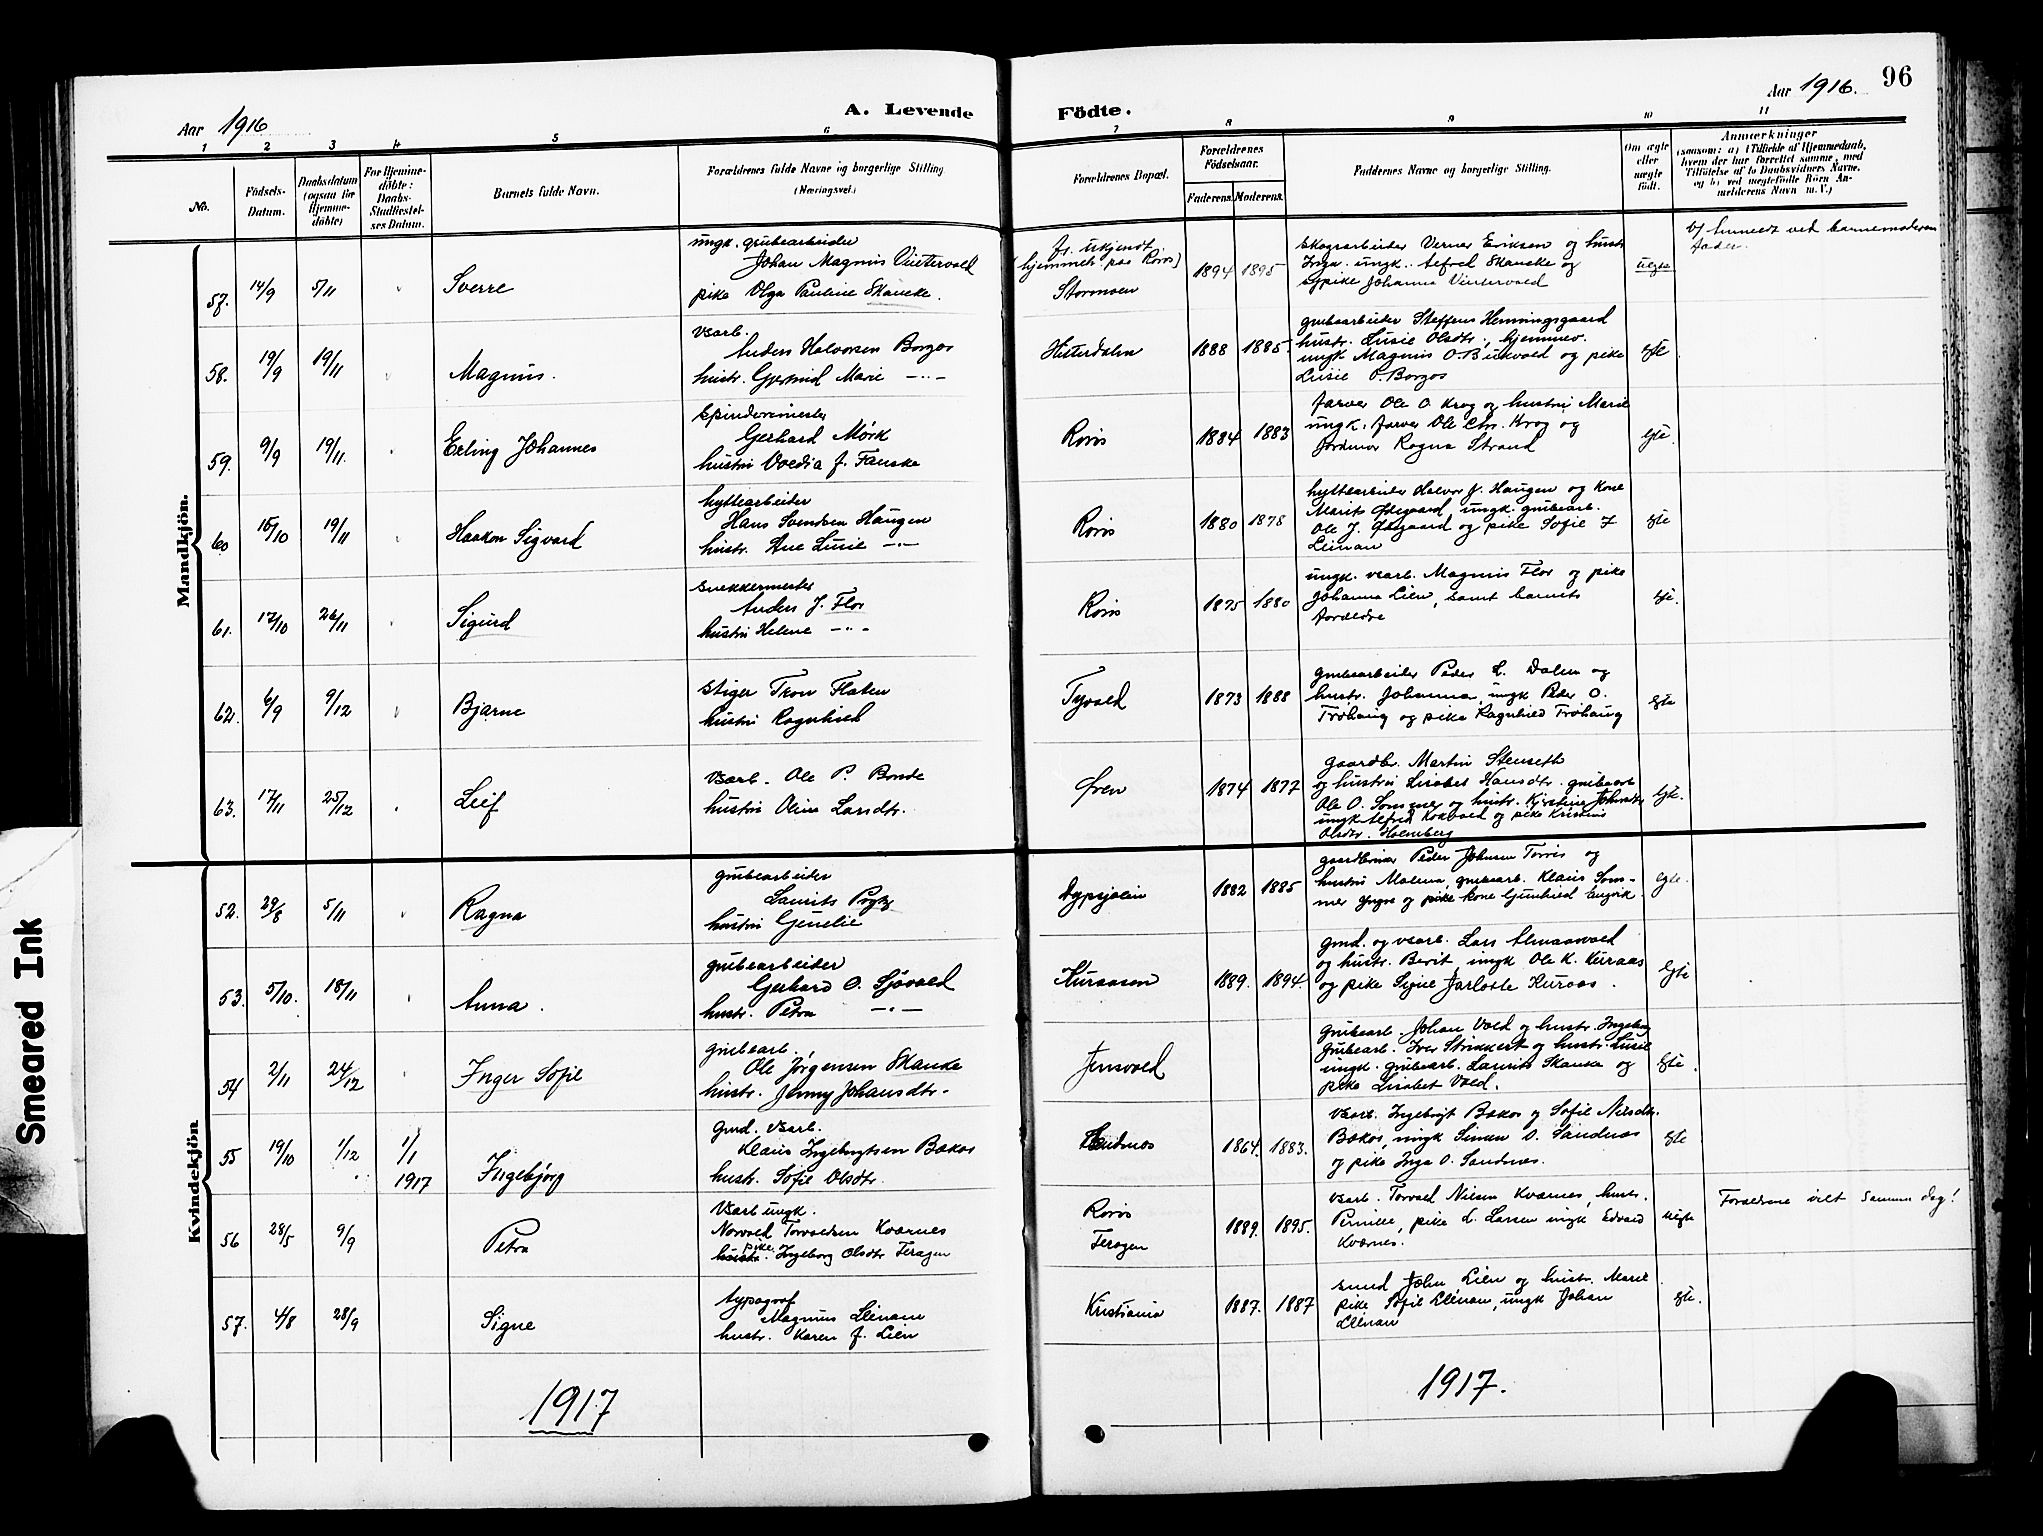 96
Aar 1916
A. Levende
Födte.
Aar 1916.
1 2 3 4 5 6 7 8 9 10 11
No.
Födsels-
Datum.
Daabsdatum
(ogsaa for
Hjemme-
döbte)
For Hjemme-
döbte:
Daabs-
Stadfæstel-
ses Datum.
Barnets fulde Navn.
Forældrenes fulde Navne og borgerlige Stilling
(Næringsvei.)
Forældrenes Bopæl.
Forældrenes
Födselsaar.
Faderens. Moderens.
Faddernes Navne og borgerlige Stilling.
Om ægte
eller
uægte
födt.
Anmærkninger
(saasom: a) i Tilfælde af Hjemmedaab,
hvem der har forrettet samme, med
Tilföielse af to Daabsvidners Navne,
og b) ved uægtefödte Börn An-
melderens Navn m. V.)
Mandkjön.
57. 14/9 5/11 Sverre
ungk. grubearbeider
Johan Magnus Vintervold
pike Olga Pauline Skancke.
fr. ukjendt
(hjemmeh. paa Røros)
Stormoen
1894 1895
skogsarbeider Verner Eriksen og hustr
Inga. ungk. Alfred Skancke og
pike Johanna Vintervold
uegte
b) Anmeldt ved barnemoderens
fader.
58. 19/9 19/11 Magnus.
vsarb.
Anders Halvorsen Borgos
hustr. Gjertrud Marie -"-
Hitterdalen
1888 1885.
grubearbeider Steffens Henningsgaard
hustr. Lusie Olsdtr., hjemmev.
ungk Magnus O. Bukvold og pike
Lusie P. Borgos
egte
59. 9/9 19/11. Erling Johannes
spindemester
Gerhard Mørk
hustru Valdia J. Fanske
Røros
1884 1883
farver Ole O. Krog og hustru Marie
ungk. farver Ole Chr. Krog og
jordmor Ragna Strand
egte.
60 15/10 19/11 Haakon Sigvard
hyttearbeider
Hans Svendsen Haugen
hustr. Ane Lusie -"-
Røros
1880 1878
hyttearbeider Halvor J. Haugen og Kone
Marits Ødegaard, ungk. grubearb.
Ole J. Ødegaard og pike Sofie J
Leinan
egte
61. 17/10 26/11 Sigurd
snekkermester
Anders J. Flor
hustru Helene -"-
Røros
1875 1880
ungk. vsarb. Magnus Flor og pike
Johanna Lien, samt barnets
forældre
egte.
62. 6/9 9/12 Bjarne
stiger Tron Flaten
hustru Ragnhild
Tyvold
1873 1888
grubearbeider Peder L. Dalen og
hustr. Johanna, ungk Peder O.
Trøhaug og pike Ragnhild Trøhaug
egte
63. 17/11 25/12 Leif
vsarb. Ole P. Bonde
hustru Oline Larsdtr.
Øren
1874 1877
gaardbr. Martin Stenseth
og hustru Lisabet Hansdtr. grubearb
Ole O. Sommer og hustr. Kjerstine Johnsdtr
ungk Alfred Kokvold og pike Kristine
Olsdtr. Holmberg
egte.
Kvindekjön
52. 29/8 5/11 Ragna
grubearbeider
Laurits
hustru Genelie
Dypsjølien
1882 1885
gaardbruker Peder Johnsen Torres og
hustru Malena, grubearb. Klaus Som-
mer yngre og pike kone Gunhild Engvik.
egte.
53. 5/10. 18/11 Anna.
grubearbeider
Gerhard O. Sjøvold
hustr. Petra -"-
Kuraasen
1889. 1894.
gmd. og vsarb. Lars Almaasvold
og hustr. Berit, ungk Ole K. Kuraas
og pike Signe Jarlotte Kuraas.
egte
54 2/11 24/12 Inger Sofie
grubearb.
Ole Jørgensen Skanke
hustr. Jenny Johansdtr.
Jensvold
grubearb. Johan Vold og hustr. Ingeborg
grubearb. Iver Strikkert og hustr. Lusie
ungk. grubearb. Laurits Skanke og
pike Lisabet Vold.
egte.
55 19/10 1/12 1/1 1917 Ingebjørg
gmd. vsarb.
Klaus Ingebrigtsen Bakos
hustr. Sofie Olsdtr.
1864. 1883.
vsarb. Ingebrigt Bakos og Sofie Nilsdtr.
Bakos, ungk Simen O. Sandnæs
og pike Inga O. Sandnæs.
egte
56 28/5 9/9 Petra
vsarb ungk.
Norvald Torvaldsen Kværnes
hustr. pike Ingeborg Olsdtr Feragen
Røros
Feragen
1889. 1895.
vsarb. Torvald Nilsen Kværnes, hustr.
Pernille, pike L. Larsen ungk Edvard
Kværnes.
uegte
Forældrene viet samme dag!
57. 4/8 28/9 Signe
typograf
Magnus Leinan
hustr. Karen J. Lien
Kristiania
1887. 1887
smed John Lien og hustr. Marie
pike Sofie Leinan, ungk Johan
Leinan
egte.
1917
1917.
Smeared Ink